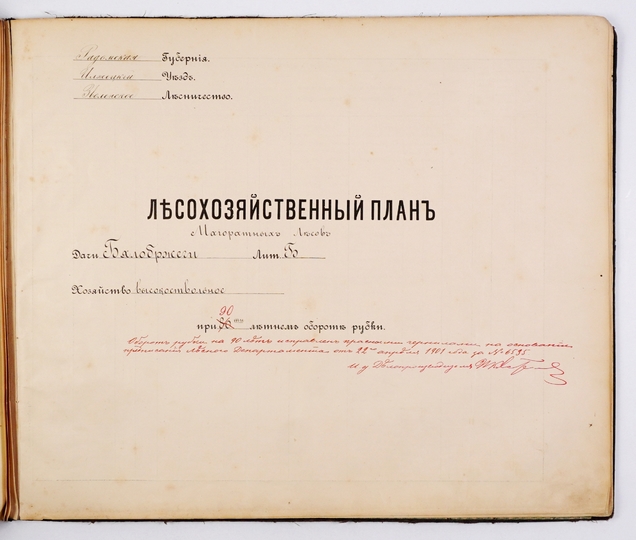 Радомская Губернія.
Илжецкій Уѣздъ.
Лѣсничество.
ЛѢСОХОЗЯЙСТВЕННЫЙ ПЛАНЪ
Маіоратныхъ лѣсовъ
Дачи Бялобржеги Лит. Б
Хозяйство высокоствольное
90
при лѣтнемъ оборотѣ рубки.
Оборотъ рубки на 90 лѣтъ исправленъ красными чернилами на основаніи
предписанія Лѣсного Департамента отъ 22го апрѣля 1901 года за № 6535
И. д. Дѣлопроизводителя